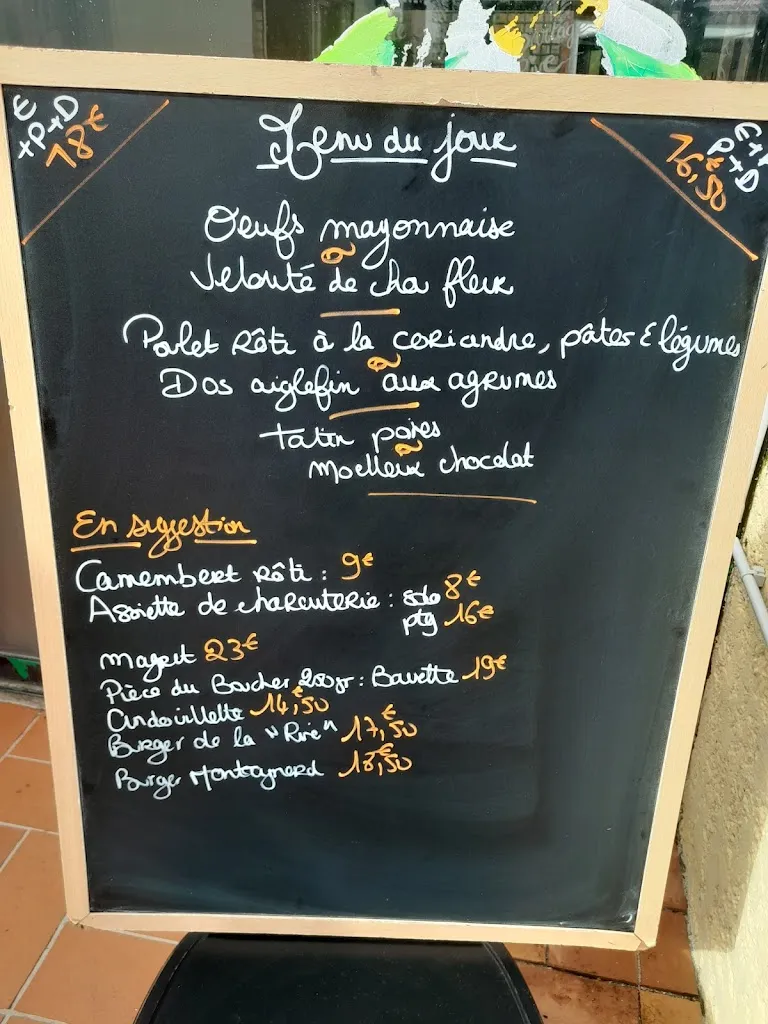 E
+P+D
18€
E+P
P+D
16,50€
Menu du jour
Oeufs mayonnaise
Velouté de chou fleur
Poulet rôti à la coriandre, pâtes & légumes
Dos aiglefin aux agrumes
Tatin poires
Moelleux chocolat
En suggestion
Camembert rôti : 9€
Assiette de charcuterie : solo 8€
ptg 16€
Magret 23€
Pièce du Boucher 250gr : Bavette 19€
Andouillette 14,50€
Burger de la "Rive" 17,50€
Burger Montagnard 18,50€